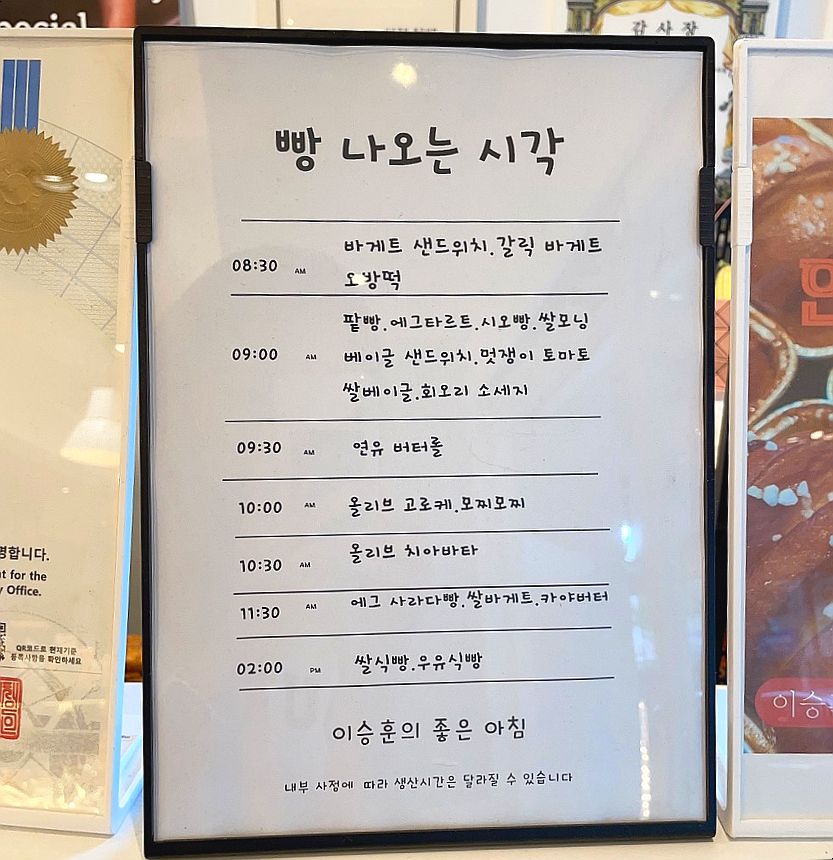 감사장
빵 나오는 시각
08:30 AM
바게트 샌드위치.갈릭 바게트
오방떡
09:00 AM
팥빵.에그타르트.시오빵.쌀모닝
베이글 샌드위치.멋쟁이 토마토
쌀베이글.회오리 소세지
09:30 AM 연유 버터롤
10:00 AM 올리브 고로케.모찌모찌
10:30 AM 올리브 치아바타
11:30 AM 에그 사라다빵.쌀바게트.카야버터
02:00 PM 쌀식빵.우유식빵
이승훈의 좋은 아침
내부 사정에 따라 생산시간은 달라질 수 있습니다
명합니다.
for the
Office.
QR코드로 현재기준
등록사항을 확인하세요
이승